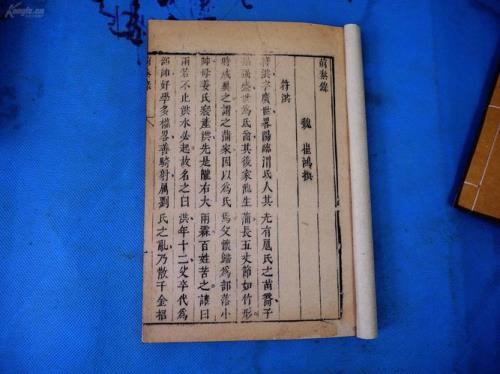 前秦錄
魏 崔鴻撰
符洪
符洪字廣世畧陽臨渭氐人其先有扈氏之苗裔子
孫强盛世為氐酋其後家池生蒲長五丈節如竹形
時咸異之謂之蒲家因以為氏焉父懷歸為部落小
帥母姜氏寢產洪先是隴右大雨霖百姓苦之謠曰
雨若不止洪水必起故名之曰洪年十二父卒代為
部帥好學多權畧善騎射屬劉氏之亂乃散千金招
前秦錄